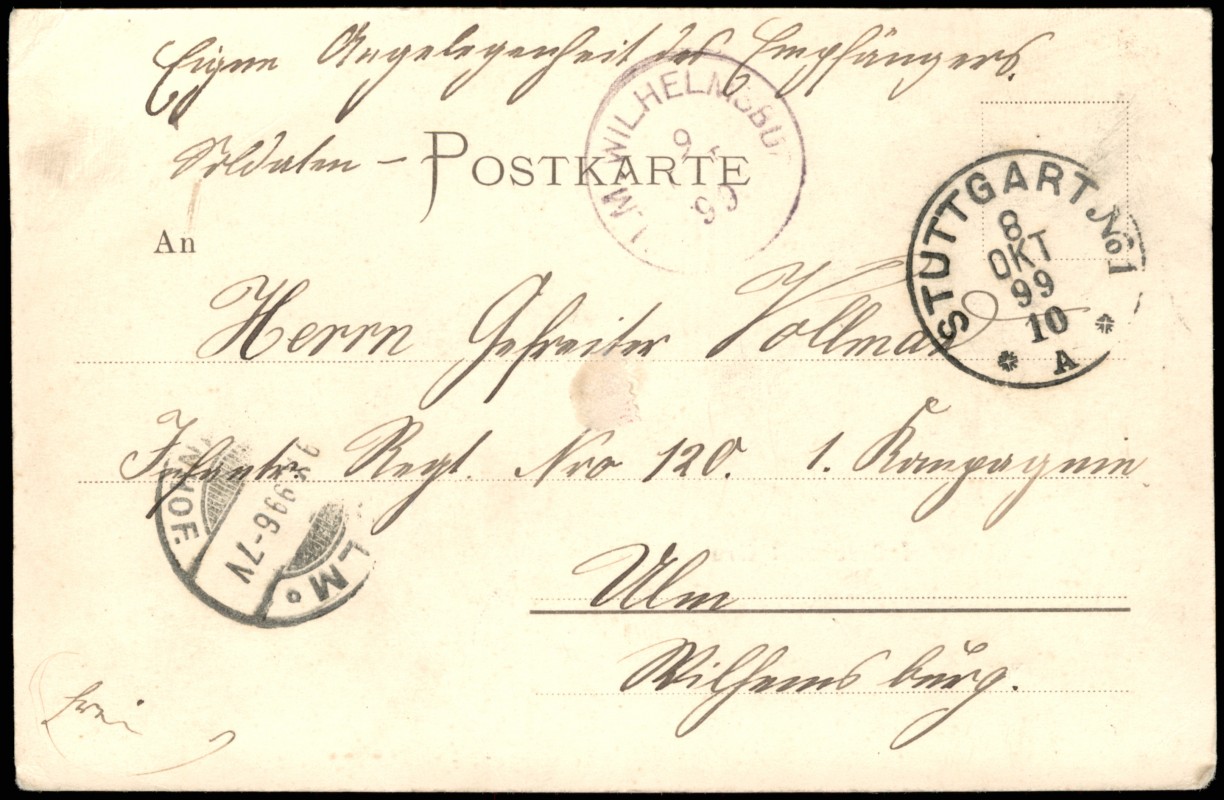 Eigene Angelegenheit des Empfängers.
Soldaten – POSTKARTE
An
Herrn Gefreiter Vollmar
Infantr. Regt. Nro 120. 1. Kompagnie
Ulm
Wilhemsburg.
frei
LM WILHELMSBU
9
STUTTGART No 1
8
OKT
99
10
A
HOF.
99 6-7V
LM